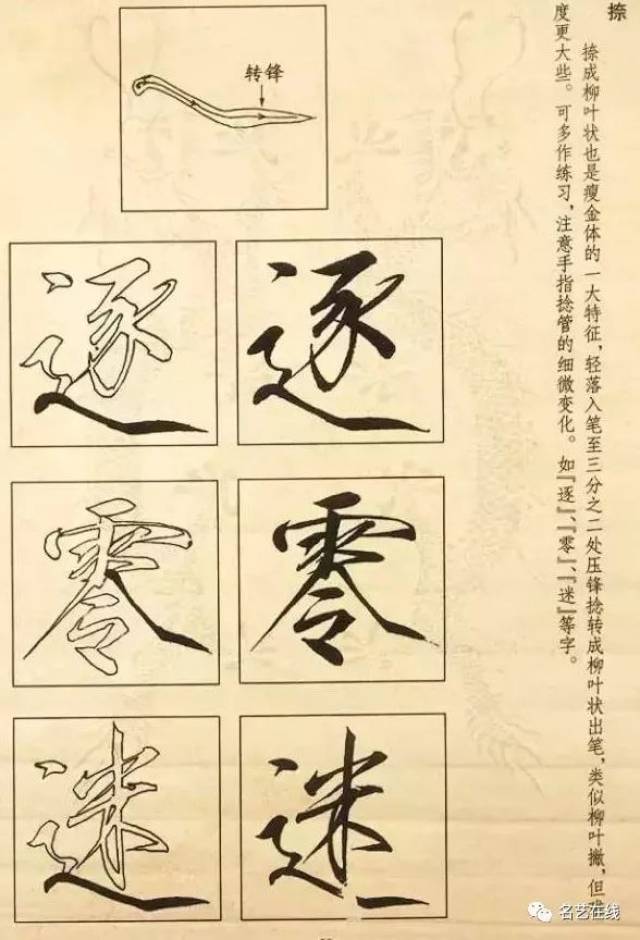 捺
捺成柳叶状也是瘦金体的一大特征，轻落入笔至三分之二处压锋捻转成柳叶状出笔，类似柳叶撇，但
度更大些。可多作练习，注意手指捻管的细微变化。如『逐』、『零』、『迷』等字。
转锋
逐 逐
零 零
迷 迷
名艺在线